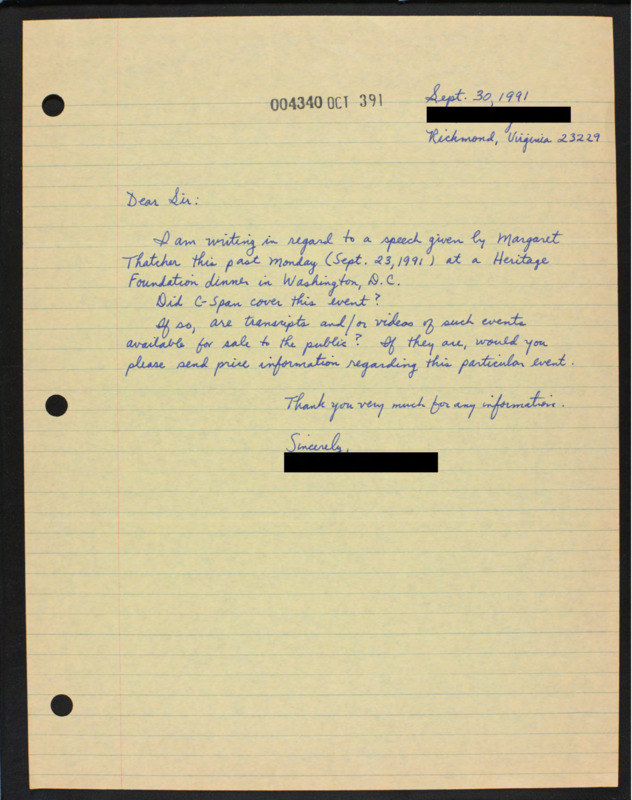 004340 OCT 391
Sept. 30, 1991
Richmond, Virginia 23229
Dear Sir:
I am writing in regard to a speech given by Margaret
Thatcher this past Monday (Sept. 23, 1991) at a Heritage
Foundation dinner in Washington, D.C.
Did C-Span cover this event?
If so, are transcripts and/or videos of such events
available for sale to the public? If they are, would you
please send price information regarding this particular event.
Thank you very much for any information.
Sincerely,